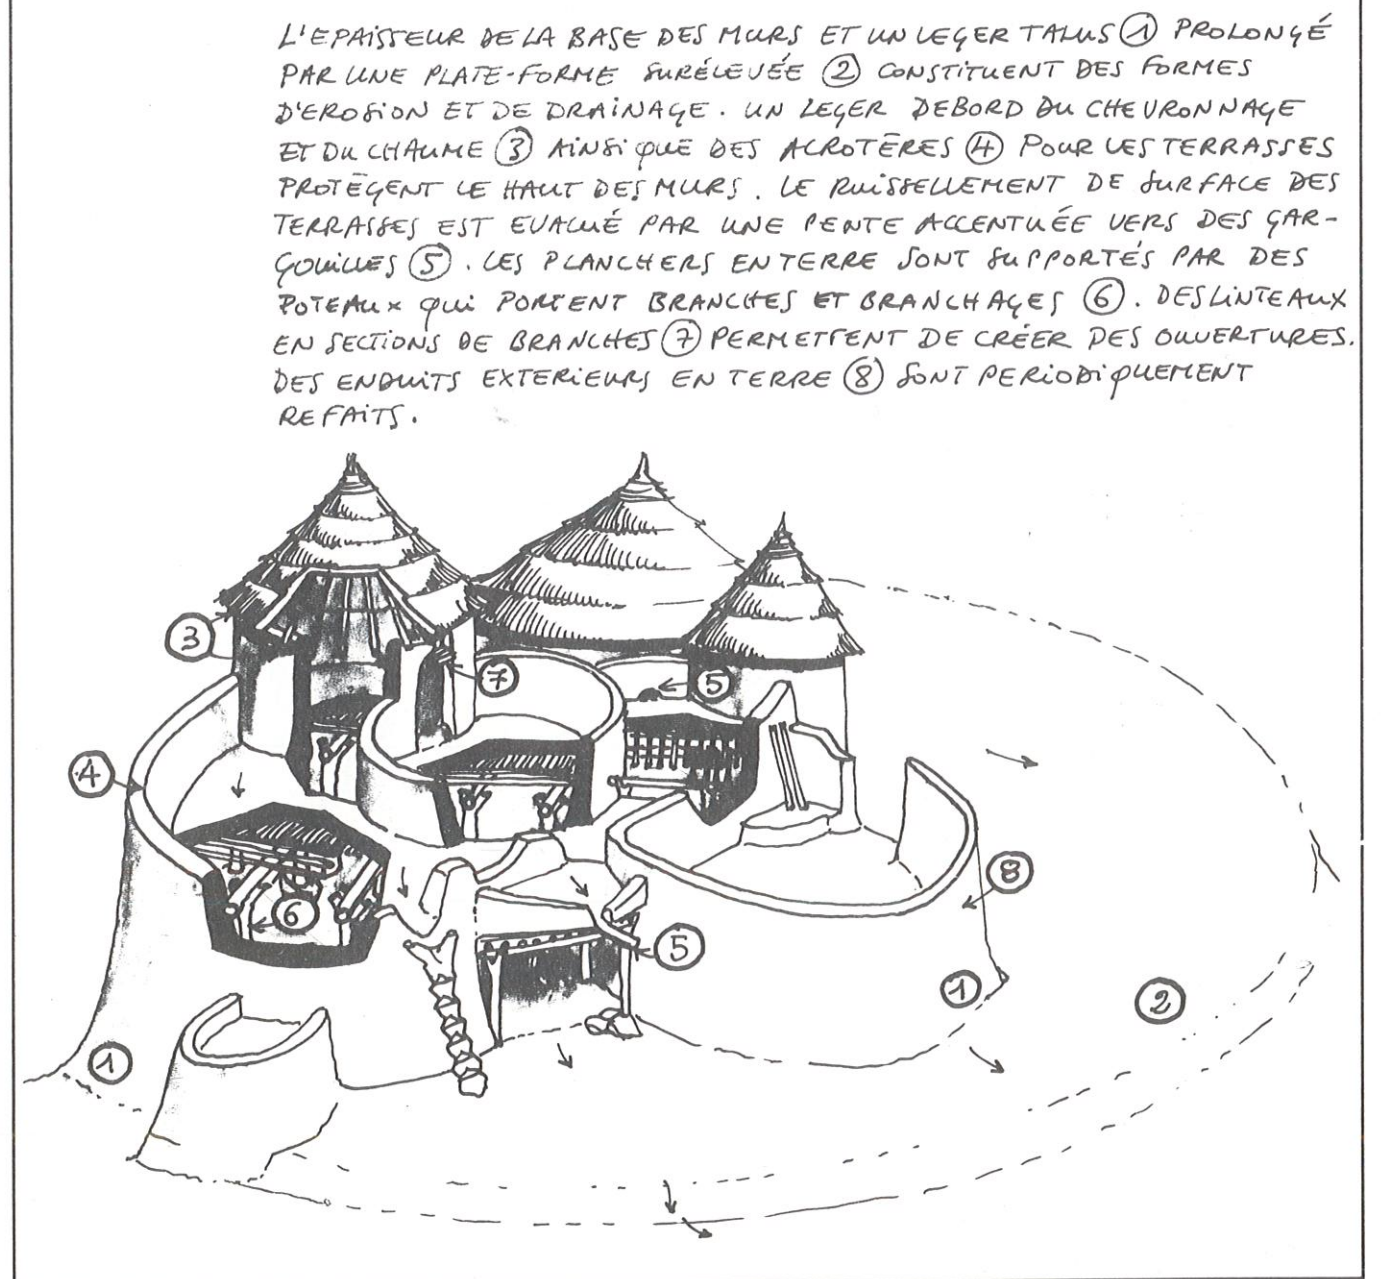 L'EPAISSEUR DE LA BASE DES MURS ET UN LEGER TALUS ① PROLONGÉ
PAR UNE PLATE-FORME SURÉLEVÉE ② CONSTITUENT DES FORMES
D'EROSION ET DE DRAINAGE. UN LEGER DEBORD DU CHEVRONNAGE
ET DU CHAUME ③ AINSI QUE DES ACROTÈRES ④ POUR LES TERRASSES
PROTÈGENT LE HAUT DES MURS. LE RUISSELLEMENT DE SURFACE DES
TERRASSES EST EVACUÉ PAR UNE PENTE ACCENTUÉE VERS DES GAR-
GOUILLES ⑤. LES PLANCHERS EN TERRE SONT SUPPORTÉS PAR DES
POTEAUX QUI PORTENT BRANCHES ET BRANCHAGES ⑥. DES LINTEAUX
EN SECTIONS DE BRANCHES ⑦ PERMETTENT DE CRÉER DES OUVERTURES.
DES ENDUITS EXTERIEURS EN TERRE ⑧ SONT PERIODIQUEMENT
REFAITS.
③
⑦
⑤
④
⑧
⑥
⑤
①
②
①